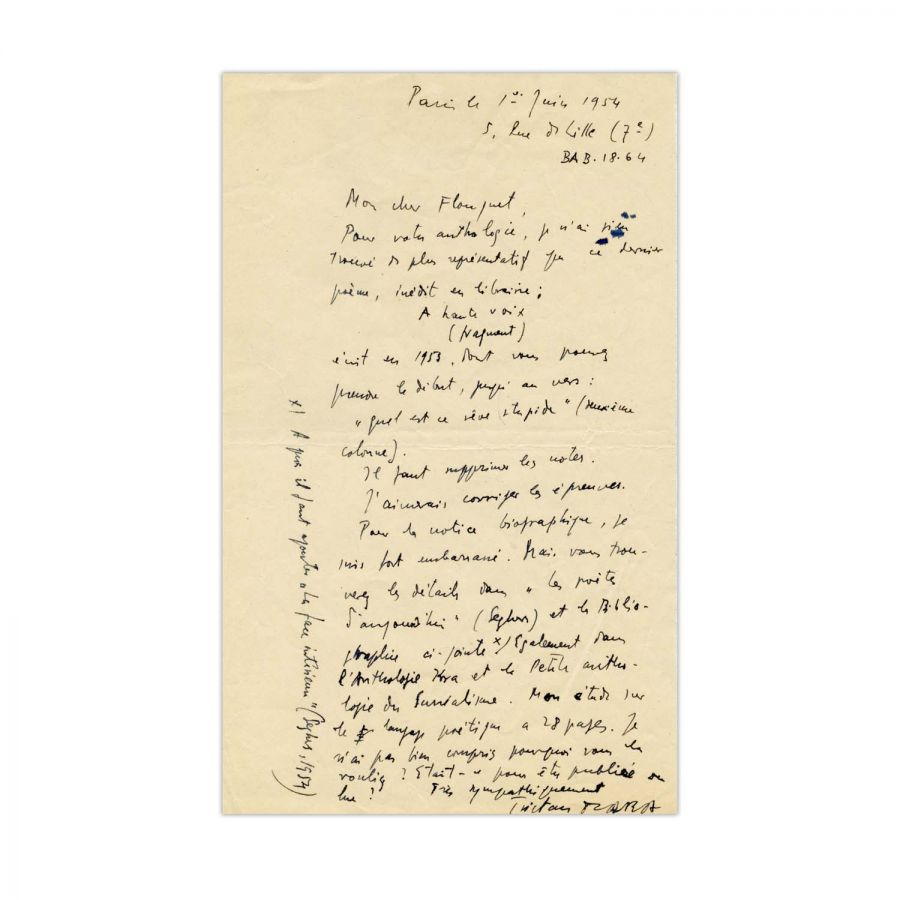 Paris le 1er Juin 1954
5, Rue de Lille (7e)
BAB. 18.64
Mon cher Flouquet,
Pour votre anthologie, je n'ai rien
trouvé de plus représentatif que ce dernier
poème, inédit en librairie :
A haute voix
(fragment)
écrit en 1953, dont vous pouvez
prendre le début, jusqu'au vers :
"quel est ce rêve stupide" (deuxième
colonne).
Il faut supprimer les notes.
J'aimerais corriger les épreuves.
Pour la notice biographique, je
suis fort embarrassé. Mais vous trou-
verez les détails dans "Les poètes
d'aujourd'hui" (Seghers) et la Biblio-
graphie ci-jointe x) Egalement dans
l'Anthologie Kra et la Petite antho-
logie du Surréalisme. Mon étude sur
le langage poétique a 28 pages. Je
n'ai pas bien compris pourquoi vous la
vouliez ? Etait-ce pour être publiée ou
lue ?
Très sympathiquement
Tristan TZARA
x) A quoi il faut ajouter "La face intérieure" (Seghers, 1954)